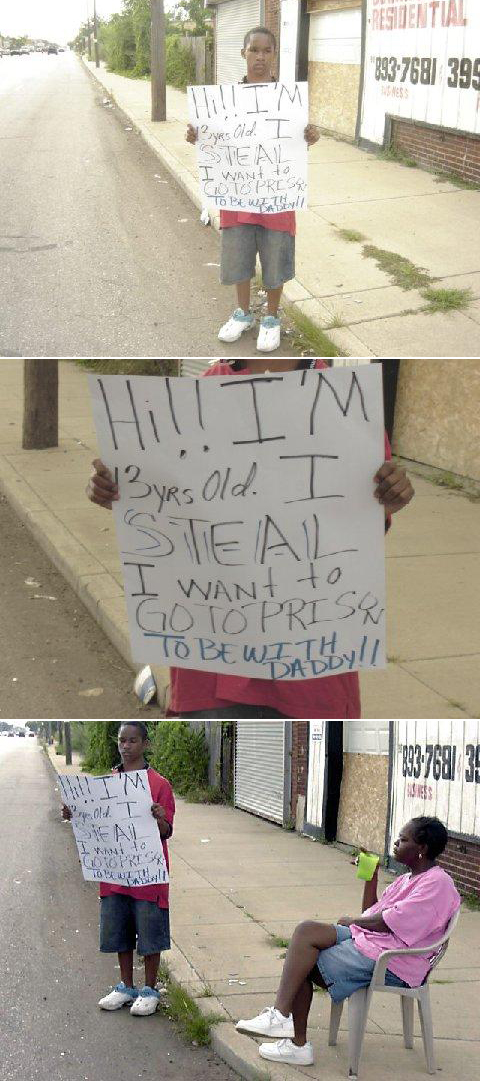 RESIDENTIAL
893-7681 395
BUSINESS
Hi!! I'M
13yrs Old. I
STEAL
I WANT to
GO TO PRISON
TO BE WITH
DADDY!!
Hi!! I'M
13yrs Old. I
STEAL
I WANT to
GO TO PRISON
TO BE WITH
DADDY!!
893-7681 39
BUSINESS
Hi!! I'M
13yrs Old. I
STEAL
I WANT to
GO TO PRISON
TO BE WITH
DADDY!!